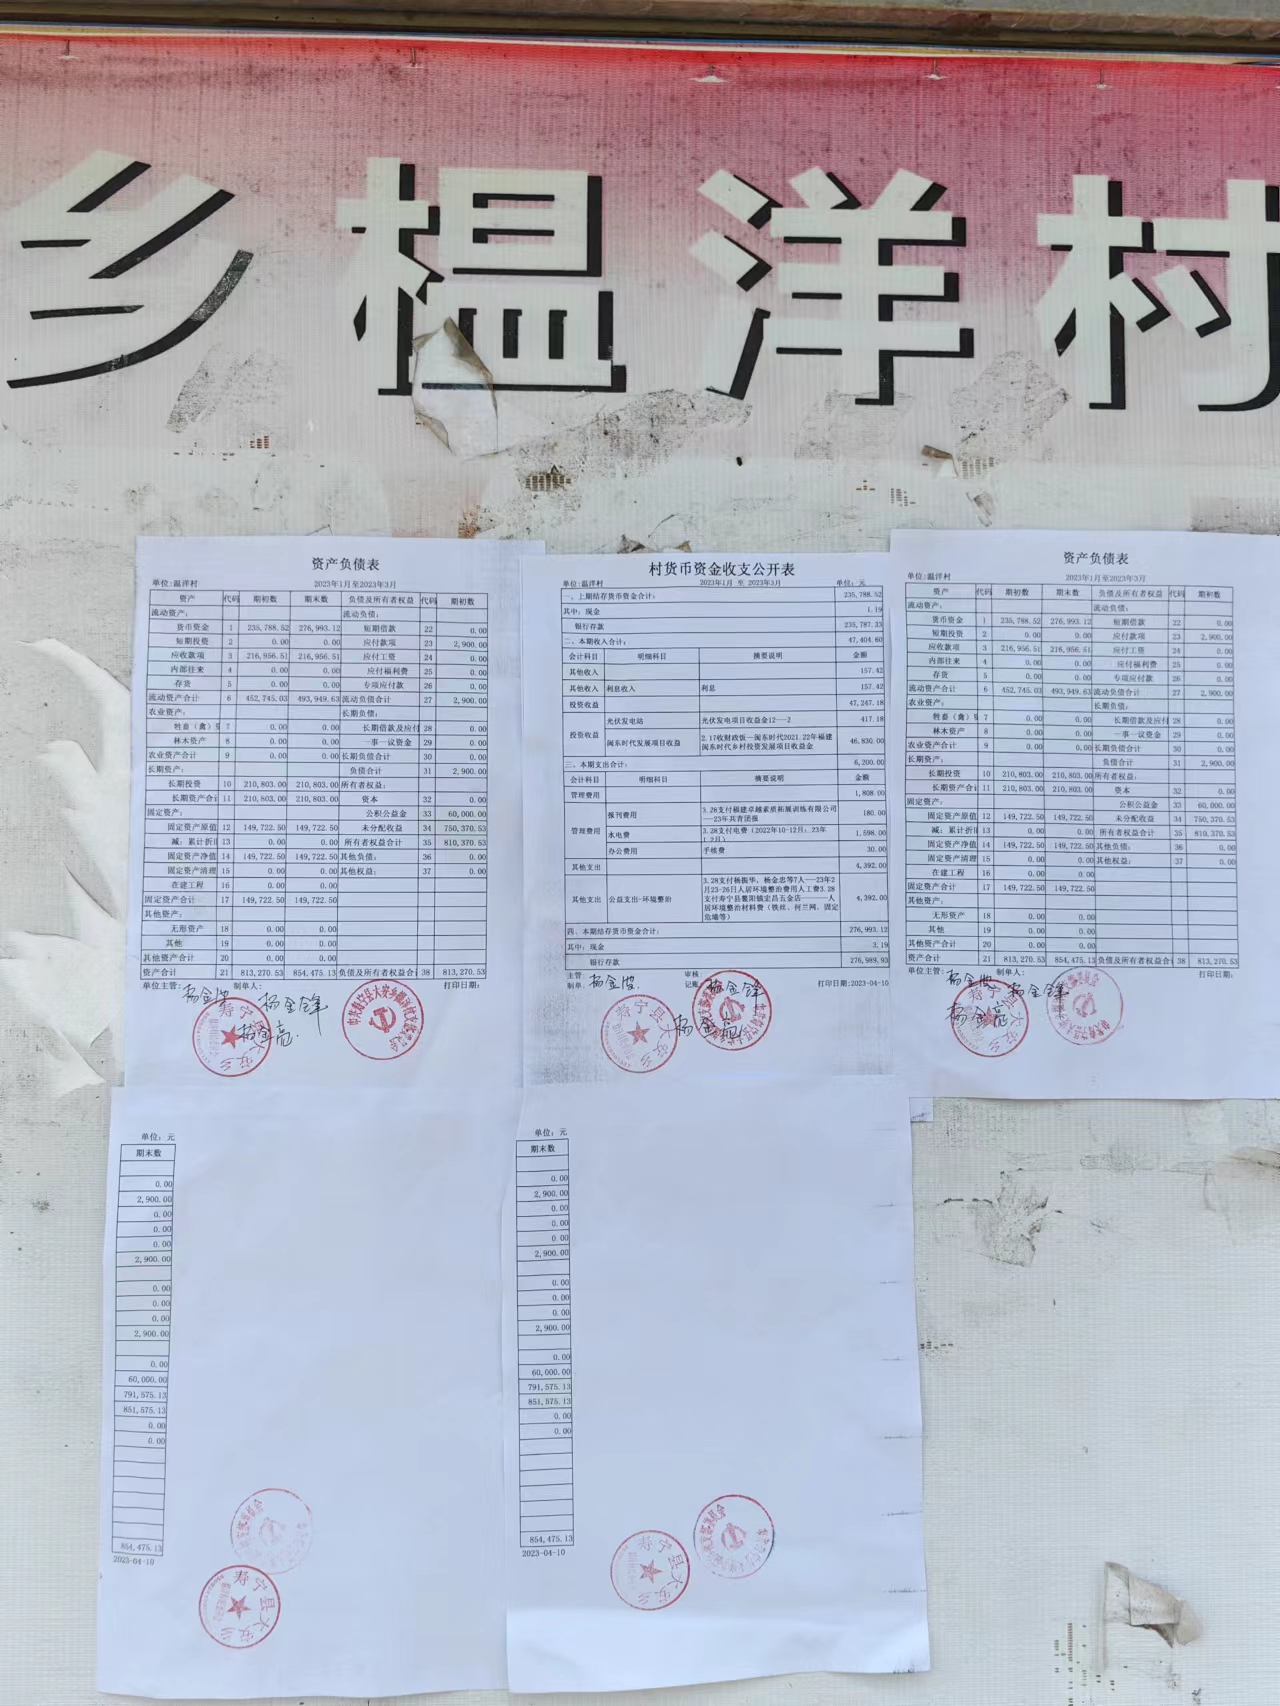 乡榅洋村
资产负债表
单位:温洋村 2023年1月至2023年3月
资产 代码 期初数 期末数 负债及所有者权益 代码 期初数
流动资产: 流动负债:
货币资金 1 235,788.52 276,993.12 短期借款 22 0.00
短期投资 2 0.00 0.00 应付款项 23 2,900.00
应收款项 3 216,956.51 216,956.51 应付工资 24 0.00
内部往来 4 0.00 0.00 应付福利费 25 0.00
存货 5 0.00 0.00 专项应付款 26 0.00
流动资产合计 6 452,745.03 493,949.63 流动负债合计 27 2,900.00
农业资产: 长期负债:
牲畜（禽）资 7 0.00 0.00 长期借款及应付 28 0.00
林木资产 8 0.00 0.00 一事一议资金 29 0.00
农业资产合计 9 0.00 0.00 长期负债合计 30 0.00
长期资产: 负债合计 31 2,900.00
长期投资 10 210,803.00 210,803.00 所有者权益:
长期资产合计 11 210,803.00 210,803.00 资本 32 0.00
固定资产: 公积公益金 33 60,000.00
固定资产原值 12 149,722.50 149,722.50 未分配收益 34 750,370.53
减: 累计折旧 13 0.00 0.00 所有者权益合计 35 810,370.53
固定资产净值 14 149,722.50 149,722.50 其他负债: 36 0.00
固定资产清理 15 0.00 0.00 其他权益: 37 0.00
在建工程 16 0.00 0.00
固定资产合计 17 149,722.50 149,722.50
其他资产:
无形资产 18 0.00 0.00
其他 19 0.00 0.00
其他资产合计 20 0.00 0.00
资产合计 21 813,270.53 854,475.13 负债及所有者权益合计 38 813,270.53
单位主管: 制单人: 打印日期:
杨金锋
寿宁县大安乡
村货币资金收支公开表
单位:温洋村 2023年1月 至 2023年3月 单位: 元
一、上期结存货币资金合计: 235,788.52
其中: 现金 1.19
银行存款 235,787.33
二、本期收入合计: 47,404.60
会计科目 明细科目 摘要说明 金额
其他收入 157.42
其他收入 利息收入 利息 157.42
投资收益 47,247.18
投资收益 光伏发电站 光伏发电项目收益金12--2 417.18
闽东时代发展项目收益 2.17收财政饭--闽东时代2021.22年福建
闽东时代乡村投资发展项目收益金 46,830.00
三、本期支出合计: 6,200.00
会计科目 明细科目 摘要说明 金额
管理费用 1,808.00
管理费用 报刊费用 3.28支付福建卓越素质拓展训练有限公司
--23年共青团报 180.00
水电费 3.28支付电费（2022年10-12日; 23年
1,598.00
办公费用 手续费 30.00
其他支出 4,392.00
其他支出 公益支出-环境整治 3.28支付杨振华、杨金忠等7人--23年2
月23-26日人居环境整治费用人工费3.28
支付寿宁县鳌阳镇宏昌五金店-----人
居环境整治材料费（铁丝、何兰网、固定
危墙等） 4,392.00
四、本期结存货币资金合计: 276,993.12
其中: 现金 3.19
银行存款 276,989.93
主管: 审核:
制单: 记账 打印日期:2023-04-10
杨金锋
寿宁县大安乡
资产负债表
单位:温洋村 2023年1月至2023年3月
资产 代码 期初数 期末数 负债及所有者权益 代码 期初数
流动资产: 流动负债:
货币资金 1 235,788.52 276,993.12 短期借款 22 0.00
短期投资 2 0.00 0.00 应付款项 23 2,900.00
应收款项 3 216,956.51 216,956.51 应付工资 24 0.00
内部往来 4 0.00 0.00 应付福利费 25 0.00
存货 5 0.00 0.00 专项应付款 26 0.00
流动资产合计 6 452,745.03 493,949.63 流动负债合计 27 2,900.00
农业资产: 长期负债:
牲畜（禽）资 7 0.00 0.00 长期借款及应付 28 0.00
林木资产 8 0.00 0.00 一事一议资金 29 0.00
农业资产合计 9 0.00 0.00 长期负债合计 30 0.00
长期资产: 负债合计 31 2,900.00
长期投资 10 210,803.00 210,803.00 所有者权益:
长期资产合计 11 210,803.00 210,803.00 资本 32 0.00
固定资产: 公积公益金 33 60,000.00
固定资产原值 12 149,722.50 149,722.50 未分配收益 34 750,370.53
减: 累计折旧 13 0.00 0.00 所有者权益合计 35 810,370.53
固定资产净值 14 149,722.50 149,722.50 其他负债: 36 0.00
固定资产清理 15 0.00 0.00 其他权益: 37 0.00
在建工程 16 0.00 0.00
固定资产合计 17 149,722.50 149,722.50
其他资产:
无形资产 18 0.00 0.00
其他 19 0.00 0.00
其他资产合计 20 0.00 0.00
资产合计 21 813,270.53 854,475.13 负债及所有者权益合计 38 813,270.53
单位主管: 制单人: 打印日期:
杨金锋
大安乡
单位: 元
期末数
0.00
2,900.00
0.00
0.00
0.00
2,900.00
0.00
0.00
0.00
2,900.00
0.00
60,000.00
791,575.13
851,575.13
0.00
0.00
854,475.13
2023-04-10
寿宁县大安乡
单位: 元
期末数
0.00
2,900.00
0.00
0.00
0.00
2,900.00
0.00
0.00
0.00
2,900.00
0.00
60,000.00
791,575.13
851,575.13
0.00
0.00
854,475.13
2023-04-10
寿宁县大安乡